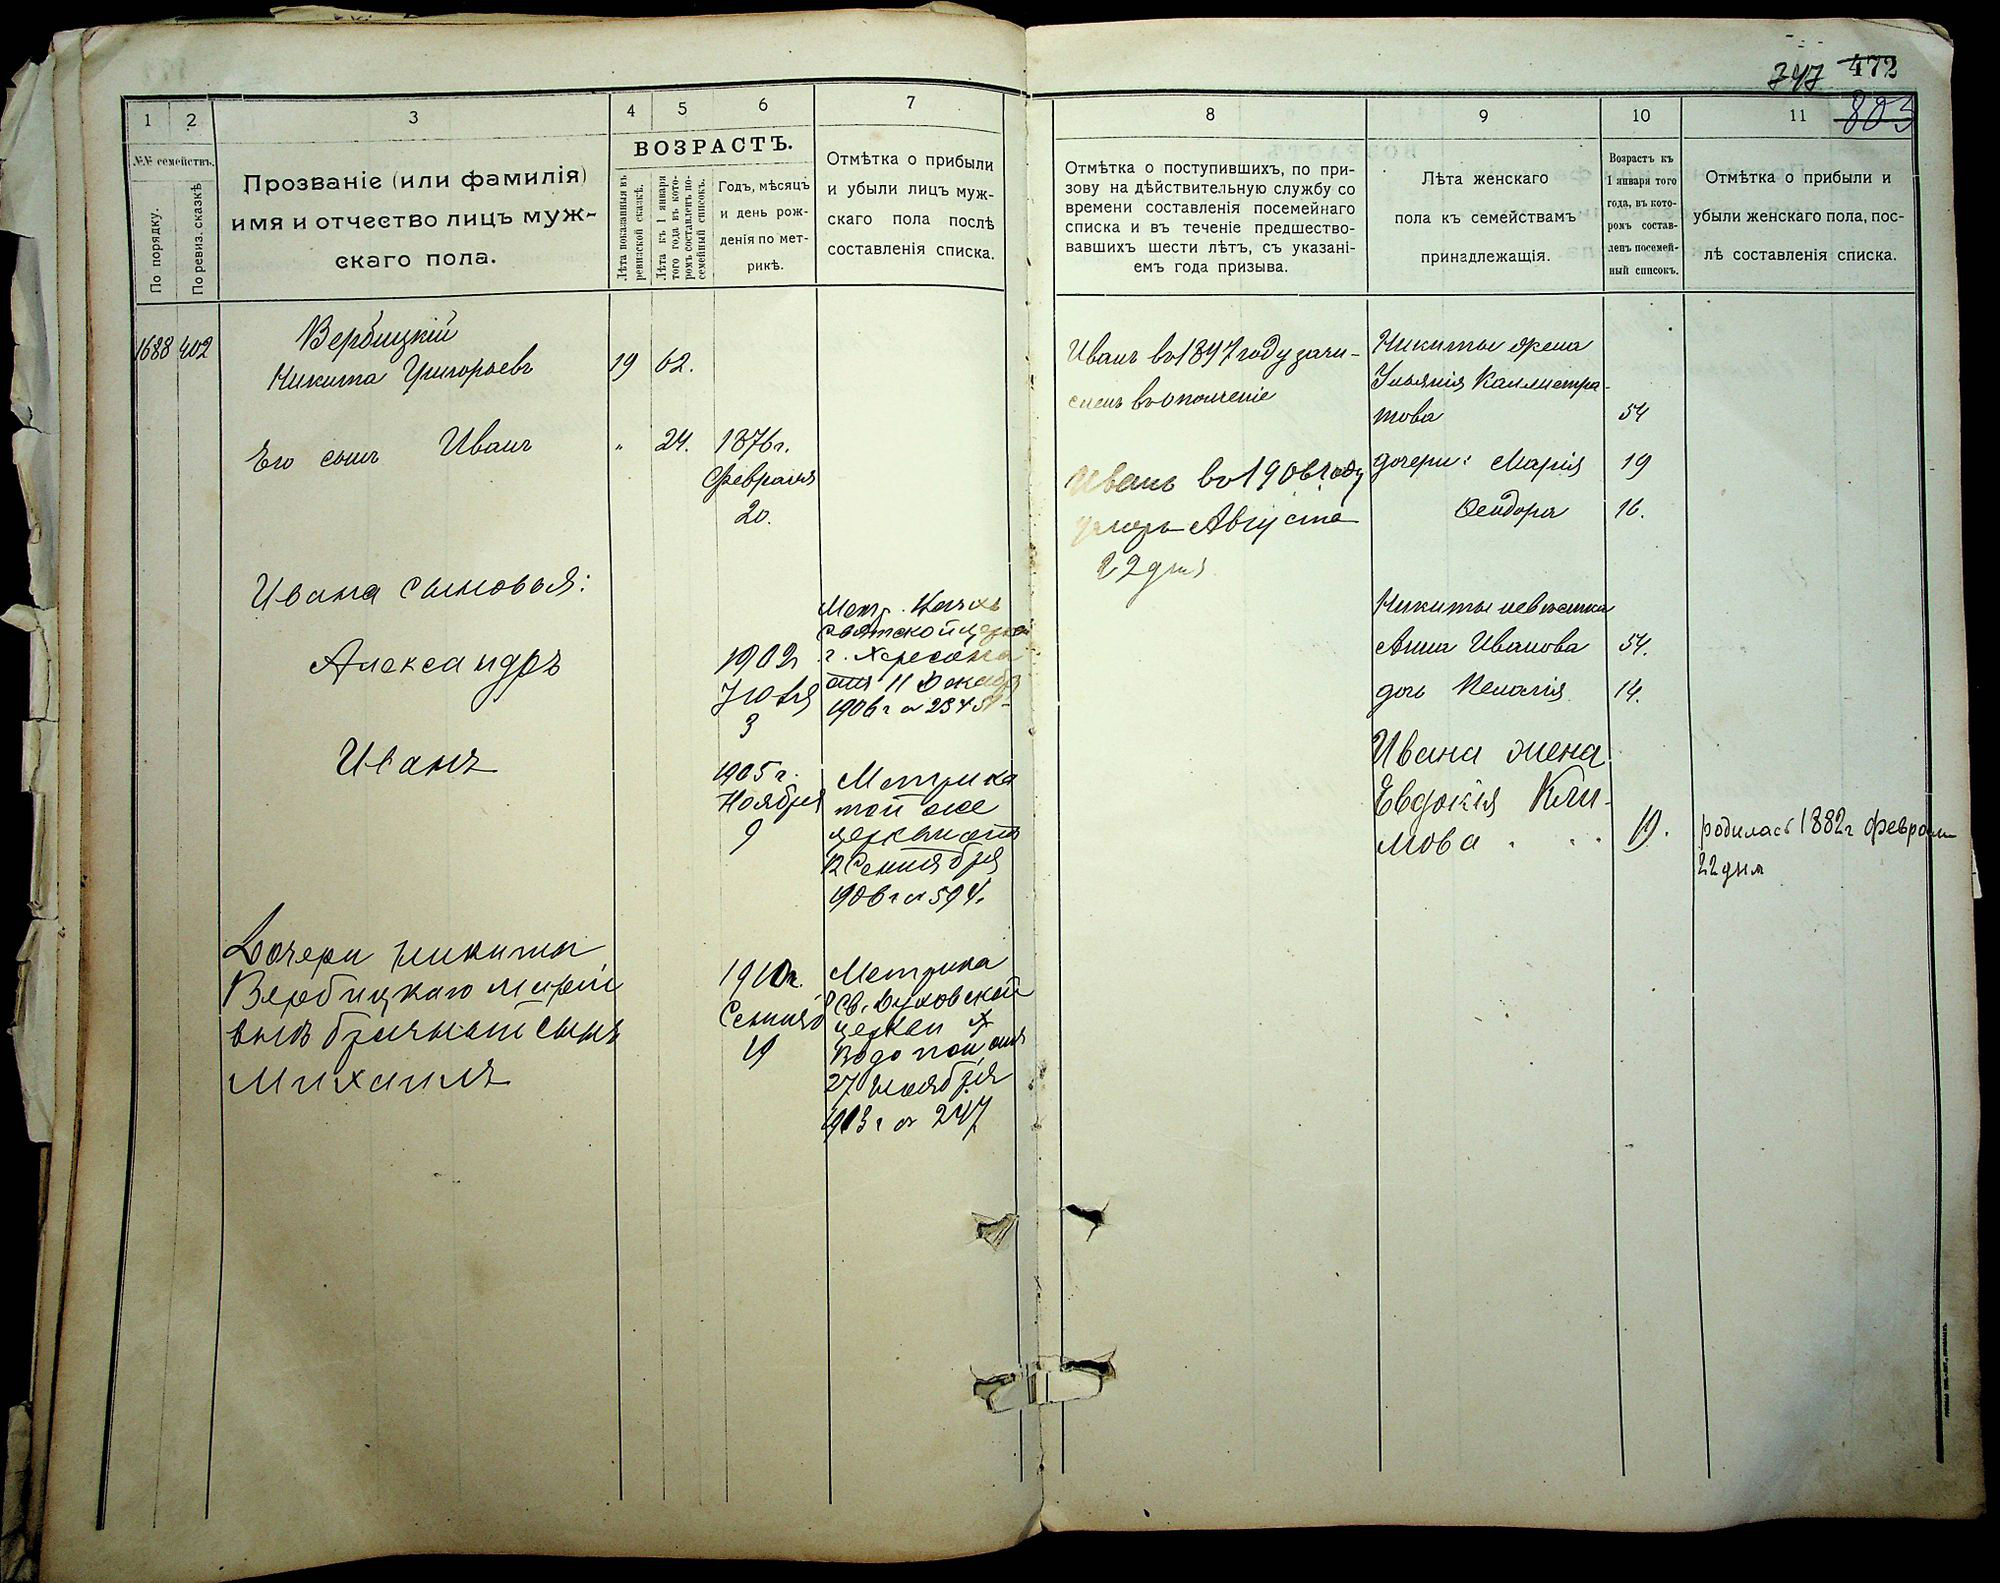 747 472
803
1 2 3 4 5 6 7
№№ семействъ.
По порядку.
По ревиз. сказкѣ
Прозваніе (или фамилія)
имя и отчество лицъ муж-
скаго пола.
ВОЗРАСТЪ.
Лѣта показанныя въ
ревизской сказкѣ.
Лѣта къ 1 января
того года въ кото-
ромъ составленъ по-
семейный списокъ.
Годъ, мѣсяцъ
и день рож-
денія по мет-
рикѣ.
Отмѣтка о прибыли
и убыли лицъ муж-
скаго пола послѣ
составленія списка.
1688 402
Вербицкій
Никита Григорьевъ 19 62.
Его сынъ Иванъ " 24. 1876 г.
Февраля
20.
Ивана сыновья:
Александръ 1902 г.
Іюля
3
Метр.
Святской церкви
г. Херсона
отъ 11 Декабр
1906 г №
Иванъ 1905 г.
Ноября
9
Метрика
той же
церкви отъ
12 Сентября
1906 г № 594.
Дочери Никиты
Вербицкаго Маріи
внѣ брачный сынъ
Михаилъ
1910 г.
Сентяб
19
Метрика
Св. Духовской
церкви х
Водопой отъ
27 Ноября
1913 г № 247
8 9 10 11
Отмѣтка о поступившихъ, по при-
зову на дѣйствительную службу со
времени составленія посемейнаго
списка и въ теченіе предшество-
вавшихъ шести лѣтъ, съ указані-
емъ года призыва.
Лѣта женскаго
пола къ семействамъ
принадлежащія.
Возрастъ къ
1 января того
года, въ кото-
ромъ состав-
ленъ посемей-
ный списокъ.
Отмѣтка о прибыли и
убыли женскаго пола, пос-
лѣ составленія списка.
Иванъ въ 1897 году зачи-
сленъ въ ополченіе
Иванъ въ 1906 году
умеръ Августа
22 дня
Никиты жена
Ульянія Каллистра-
това 54
дочери: Марія 19
Феодора 16.
Никиты невѣстка
Анна Иванова 54.
дочь Пелагія 14.
Ивана жена
Евдокія Кли-
мова . . . 19.
родилась 1882 г Февраля
22 дня